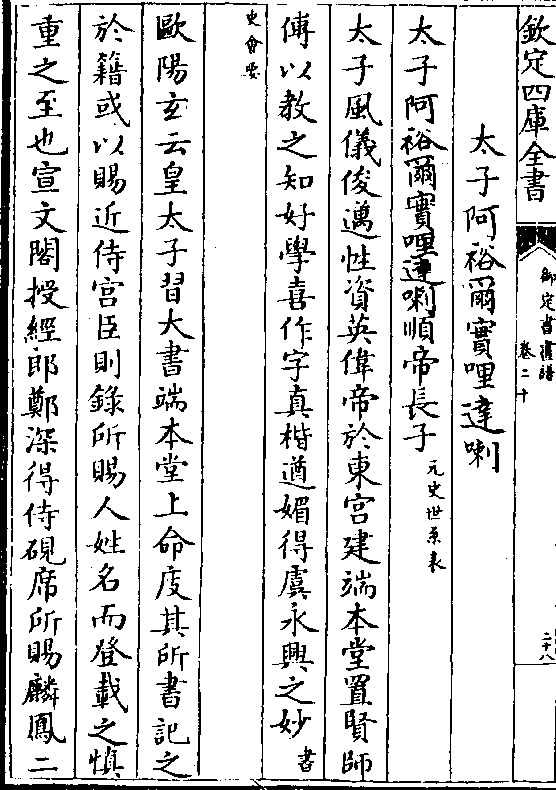 欽定四庫全書
御定書畫譜
卷二十
二十八
太子阿裕爾實哩達喇
太子阿裕爾實哩達喇順帝長子元史世系表
太子風儀俊邁性資英偉帝於東宮建端本堂置賢師
傅以教之知好學喜作字真楷遒媚得虞永興之妙書
史會要
歐陽玄云皇太子習大書端本堂上命庋其所書記之
於籍或以賜近侍宮臣則錄所賜人姓名而登載之慎
重之至也宣文閣授經郎鄭深得侍硯席所賜麟鳳二